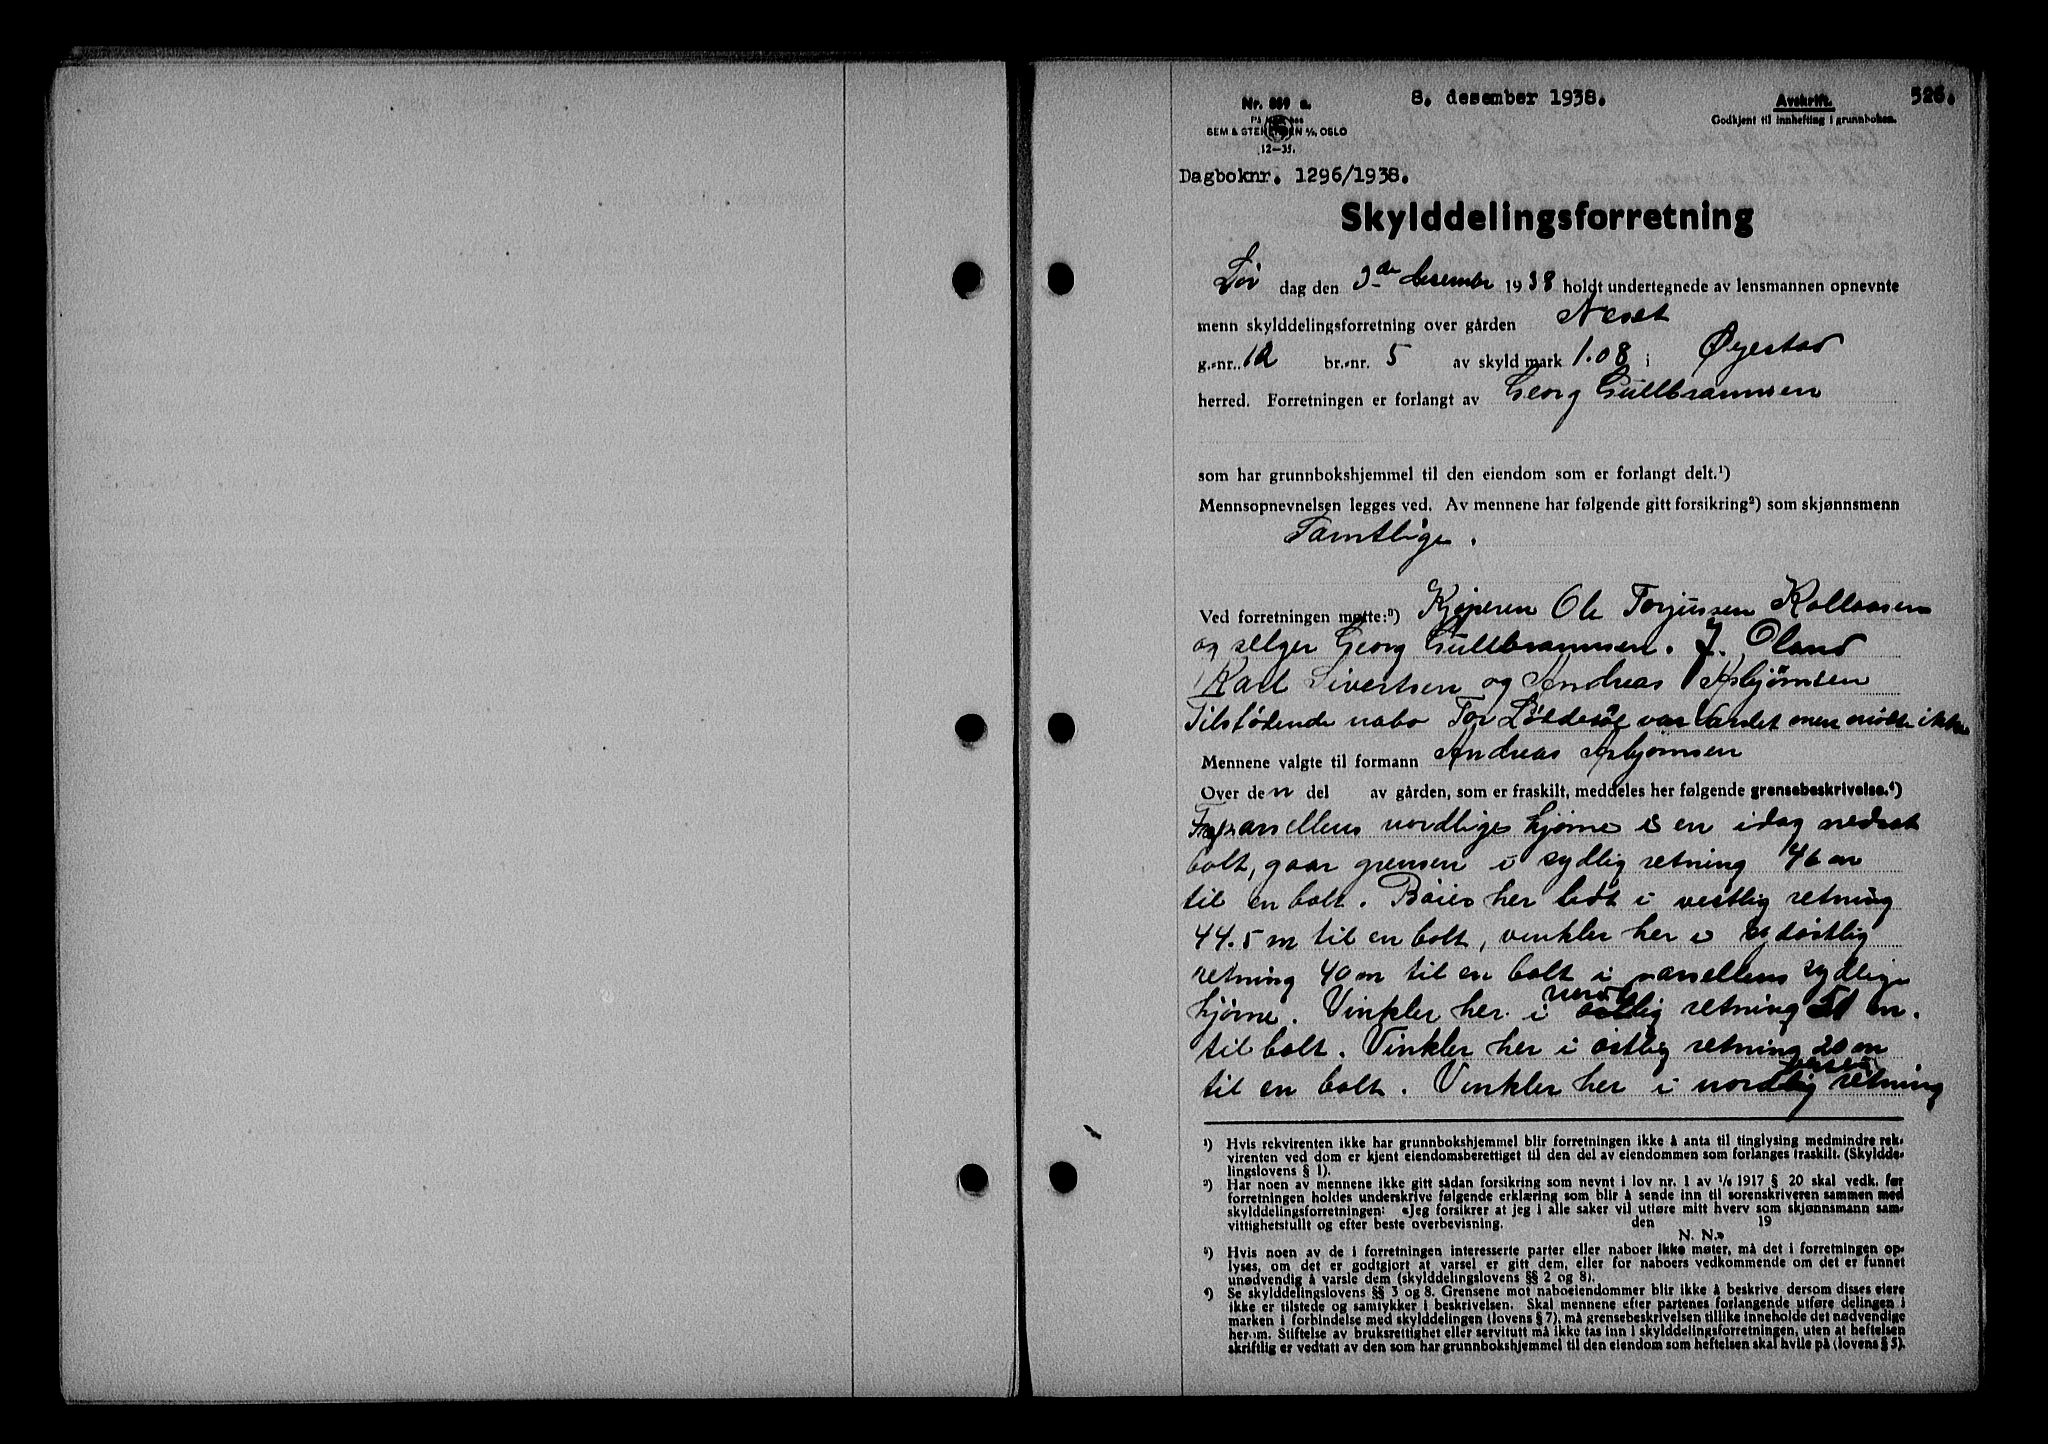 8. desember 1938.
526.
Nr. 869 a.
Avskrift.
Godkjent til innhefting i grunnboken.
SEM & STENERSEN A/S, OSLO
12-35.
Dagboknr. 1296/1938.
Skylddelingsforretning
Lør dag den 3de desember 1938 holdt undertegnede av lensmannen opnevnte
menn skylddelingsforretning over gården Neset
g.-nr. 12 br.-nr. 5 av skyld mark 1.08 i Øyestad
herred. Forretningen er forlangt av Georg Gullbrannsen
som har grunnbokshjemmel til den eiendom som er forlangt delt.¹)
Mennsopnevnelsen legges ved. Av mennene har følgende gitt forsikring²) som skjønnsmenn
Samtlige.
Ved forretningen møtte:³) Kjøperen Ole Torjussen Kollaasen
og selger Georg Gullbrannsen. J. Oland
Karl Sivertsen og Andreas Asbjørnsen
Tilstødende nabo Tor varslet men møtte ikke
Mennene valgte til formann Andreas Asbjørnsen
Over den del av gården, som er fraskilt, meddeles her følgende grensebeskrivelse.⁴)
Fra parsellens nordlige hjørne en idag nedsat
bolt, gaar grensen i sydlig retning 46 m
til en bolt. Bøies her lidt i vestlig retning
44.5 m til en bolt, vinkler her i sydøstlig
retning 40 m til en bolt i parsellens sydlige
hjørne. Vinkler her i nordlig retning 51 m.
til bolt. Vinkler her i østlig retning 20 m
til en bolt. Vinkler her i nordlig retning
¹) Hvis rekvirenten ikke har grunnbokshjemmel blir forretningen ikke å anta til tinglysing medmindre rek-
virenten ved dom er kjent eiendomsberettiget til den del av eiendommen som forlanges fraskilt. (Skyldde-
lingslovens § 1).
²) Har noen av mennene ikke gitt sådan forsikring som nevnt i lov nr. 1 av 1/6 1917 § 20 skal vedk. før
forretningen holdes underskrive følgende erklæring som blir å sende inn til sorenskriveren sammen med
skylddelingsforretningen: «Jeg forsikrer at jeg i alle saker vil utføre mitt hverv som skjønnsmann sam-
vittighetsfullt og efter beste overbevisning. den 19
N. N.»
³) Hvis noen av de i forretningen interesserte parter eller naboer ikke møter, må det i forretningen op-
lyses, om det er godtgjort at varsel er gitt dem, eller for naboers vedkommende om det er funnet
unødvendig å varsle dem (skylddelingslovens §§ 2 og 8).
⁴) Se skylddelingslovens §§ 3 og 8. Grensene mot naboeiendommer blir ikke å beskrive dersom disses eiere
ikke er tilstede og samtykker i beskrivelsen. Skal mennene efter partenes forlangende utføre delingen i
marken i forbindelse med skylddelingen (lovens § 7), må grensebeskrivelsen tillike inneholde det nødvendige
herom. Stiftelse av bruksrettighet eller servitutt må ikke tas inn i skylddelingsforretningen, uten at heftelsen
skriftlig er vedtatt av den som har grunnbokshjemmel til den eiendom som heftelsen skal hvile på (lovens § 5).